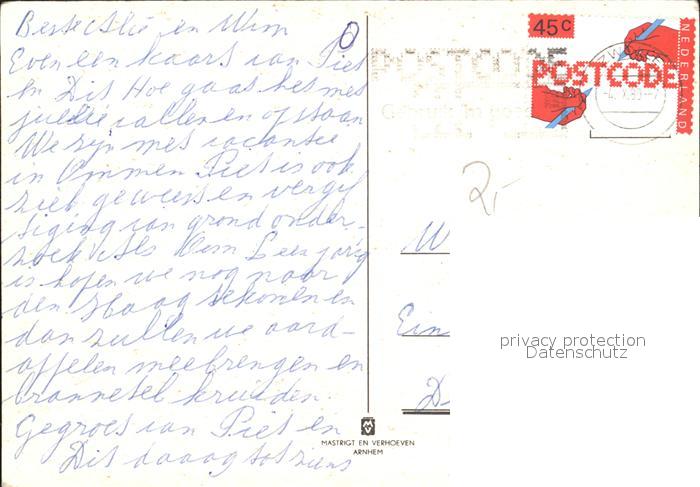 Beste Alie en Wim
Even een kaart van Piet
en Dit Hoe gaat het met
jullie allen en of staan
We zijn met vacantie
in Ommen Piet is ook
ziek geweest en vergif
tiging van grond onder-
zoek Als Wim jarig
is hopen we nog naar
den Haag te komen en
dan zullen we aard-
appelen meebrengen en
brannetel kruiden
Gegroet van Piet en
Dit daaag tot ziens
0
POSTCODE
45c
POSTCODE
NEDERLAND
2,-
W
Ein
D
privacy protection
Datenschutz
MASTRIGT EN VERHOEVEN
ARNHEM